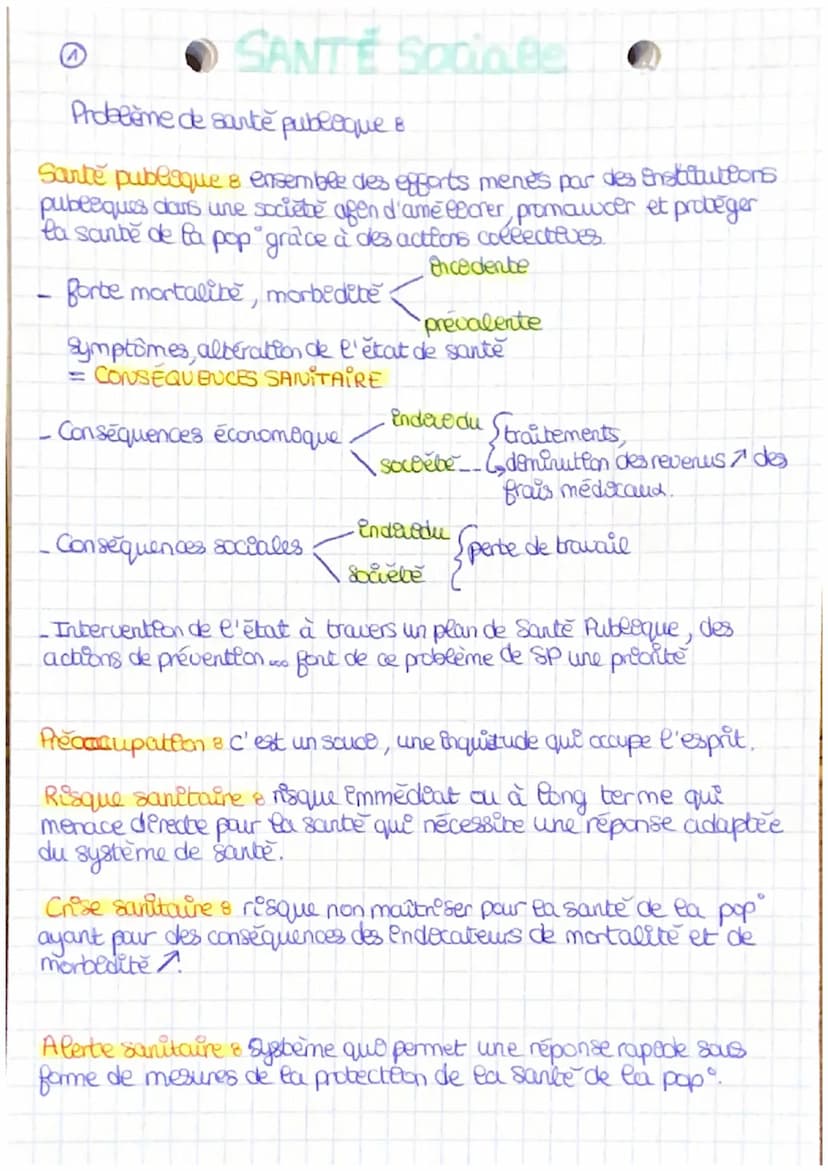 ①
SANTÉ Sociale
Problème de santé publique :
Santé publique : ensemble des efforts menés par des institutions
publiques dans une société afin d'améliorer, promouvoir et protéger
la santé de la pop° grâce à des actions collectives.
incidente
- forte mortalité, morbidité
prévalente
symptômes, altération de l'état de santé
= CONSÉQUENCES SANITAIRE
- Conséquences économique
individu
société
traitements,
↳ diminution des revenus ↗ des
frais médicaux.
- Conséquences sociales
individu
société
perte de travail
- Intervention de l'état à travers un plan de Santé Publique, des
actions de prévention ... font de ce problème de SP une priorité
Préoccupation : c'est un souci, une inquiétude qui occupe l'esprit.
Risque sanitaire : risque immédiat ou à long terme qui
menace directe pour la santé qui nécessite une réponse adaptée
du système de santé.
Crise sanitaire : risque non maîtriser pour la santé de la pop°
ayant pour des conséquences des indicateurs de mortalité et de
morbidité ↗.
Alerte sanitaire : système qui permet une réponse rapide sous
forme de mesures de la protection de la santé de la pop°.